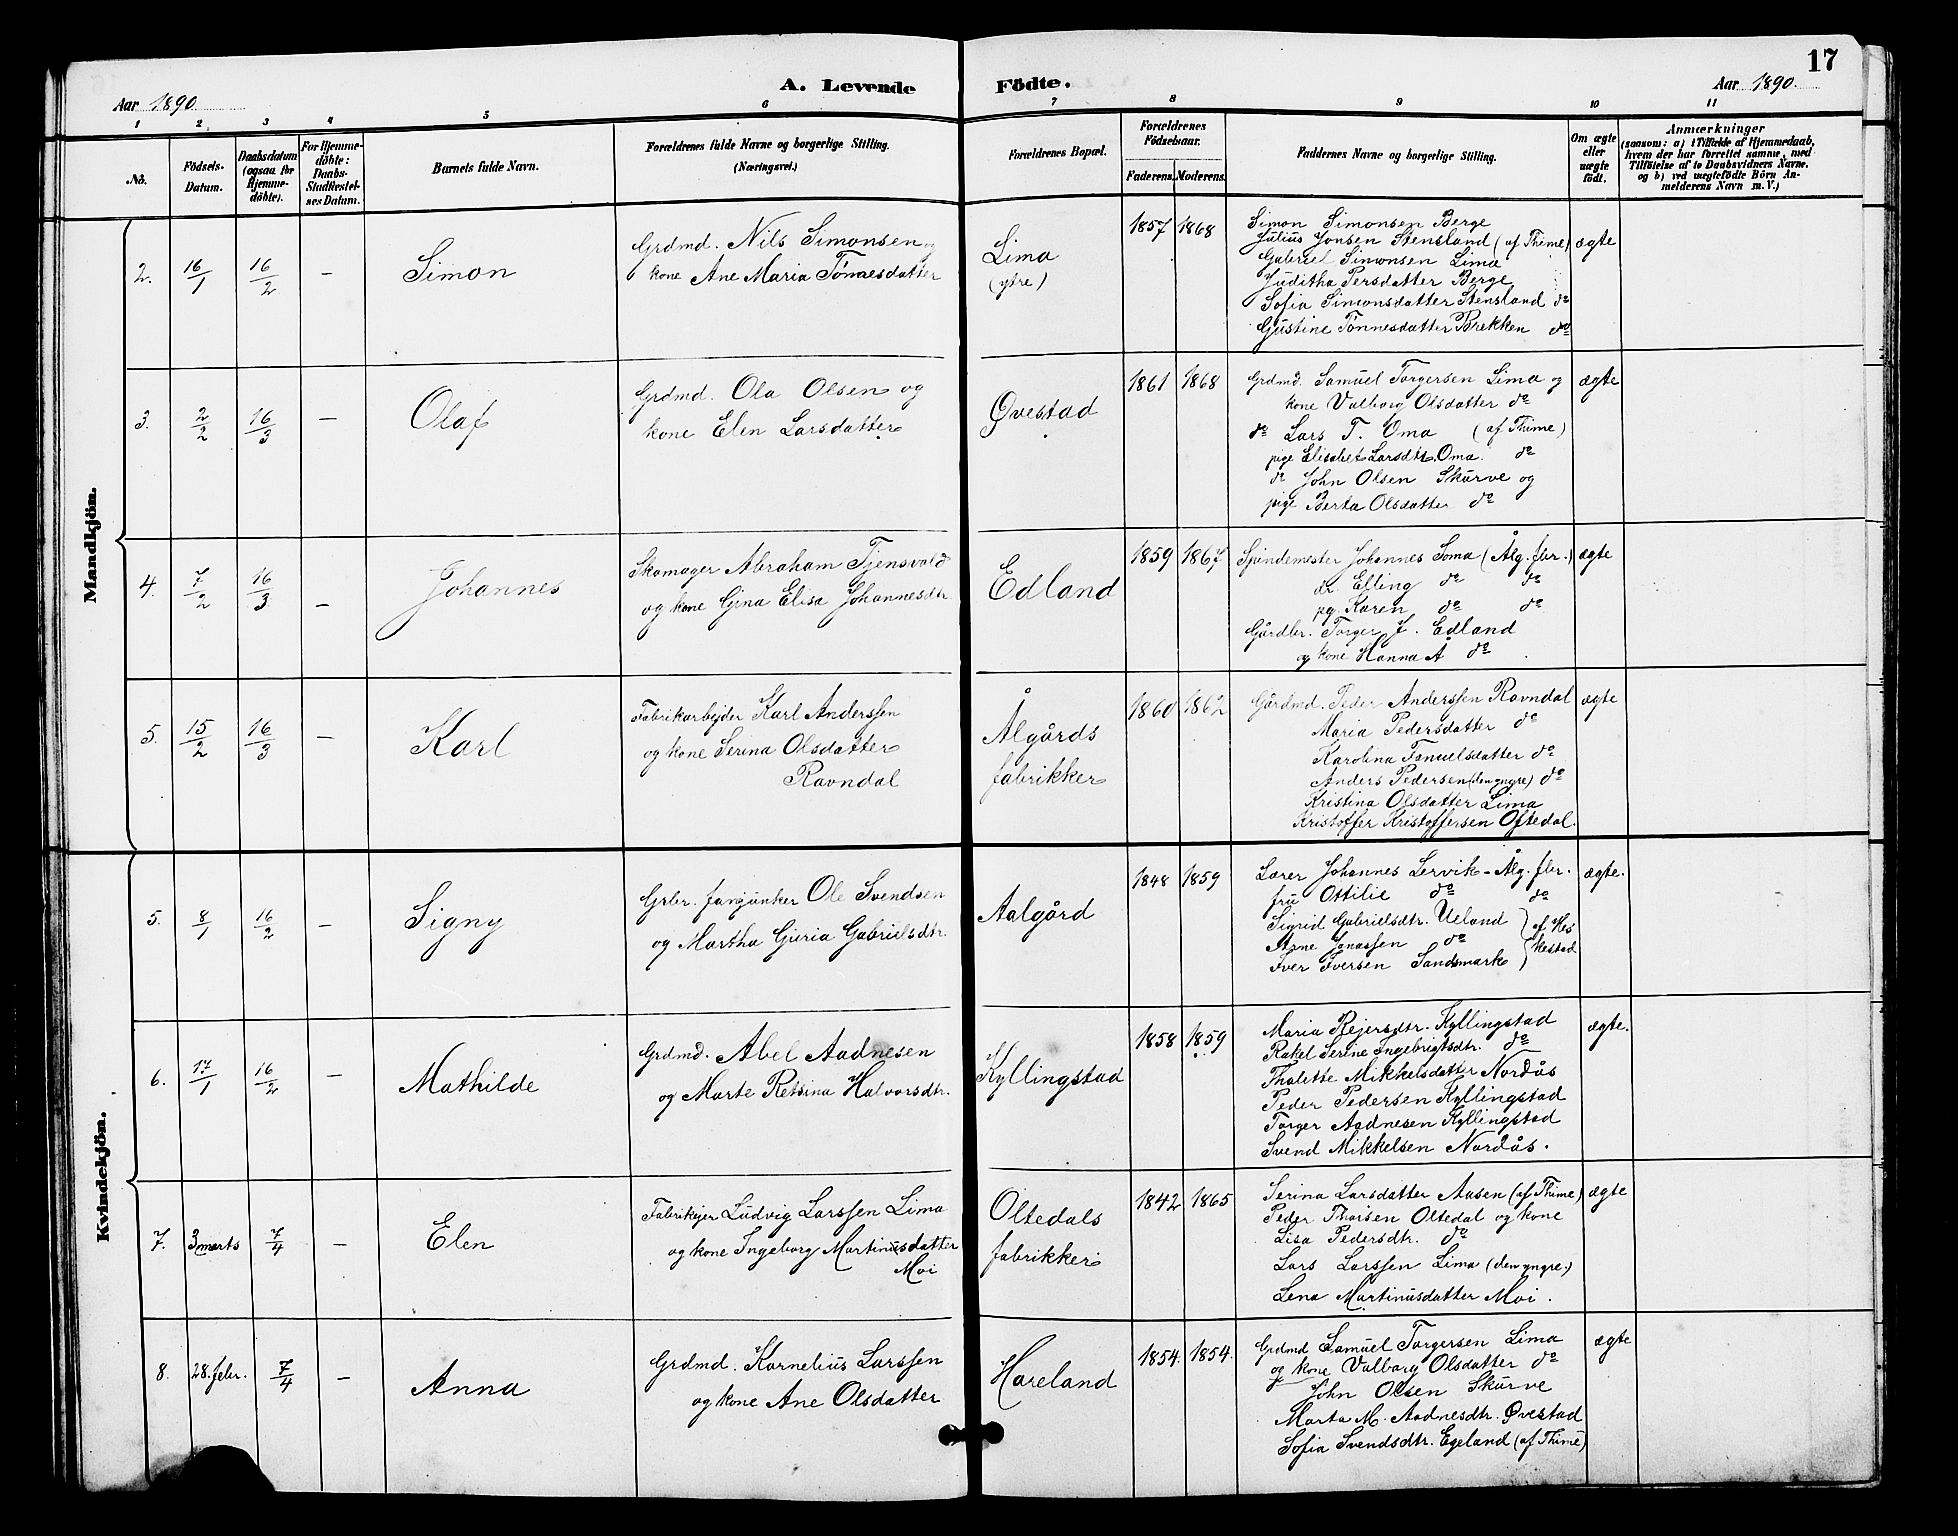 17
A. Levende Födte.
Aar 1890.
Aar 1890.
1 2 3 4 5 6 7 8 9 10 11
No.
Födsels-
Datum.
Daabsdatum
(ogsaa for
Hjemme-
döbte).
For Hjemme-
döbte:
Daabs-
Stadfæstel-
ses Datum.
Barnets fulde Navn.
Forældrenes fulde Navne og borgerlige Stilling.
(Næringsvei.)
Forældrenes Bopæl.
Forældrenes
Födselsaar.
Faderens. Moderens.
Faddernes Navne og borgerlige Stilling.
Om ægte
eller
uægte
födt.
Anmærkninger
(saasom: a) i Tilfælde af Hjemmedaab,
hvem der har forrettet samme, med
Tilföielse af to Daabsvidners Navne,
og b) ved uægtefödte Börn An-
melderens Navn m. V.)
Mandkjön.
2. 16/1 16/2 – Simon
Grdmd. Nils Simonsen og
kone Ane Maria Tønnesdatter
Lima
(ytre)
1857 1868
Simon Simonsen Berge
Julius Jonsen Stensland (af Thime)
Gabriel Simonsen Lima
Juditha Persdatter Berge
Sofia Simonsdatter Stensland do
Gustine Tønnesdatter Brekken do
ægte
3. 2/2 16/3 – Olaf
Grdmd. Ola Olsen og
kone Elen Larsdatter
Øvestad
1861 1868
Grdmd. Samuel Torgersen Lima og
kone Valborg Olsdatter do
do Lars T. Oma (af Thime)
pige Elisabet Larsdtr. Oma. do
do John Olsen Skurve og
pige Berta Olsdatter do
ægte
4. 7/2 16/3 – Johannes
Skomager Abraham Tjensvold
og kone Gina Elisa Johannesdtr
Edland
1859 1867
Spindemester Johannes Soma (Ålg. fbr.)
dr Elling do do
pg. Karen do do
Gårdbr. Torger J. Edland
og kone Hanna A do
ægte
5. 15/2 16/3 – Karl
Fabrikarbejder Karl Anderssen
og kone Serina Olsdatter
Ravndal
Ålgårds
fabrikker
1860 1862
Gårdmd. Peder Anderssen Ravndal
Maria Pedersdatter do
Karolina Fanuelsdatter do
Anders Pedersen (den yngre) do
Kristina Olsdatter Lima
Kristoffer Kristoffersen Oftedal.
ægte
Kvindekjön.
5. 8/1 16/2 – Signy
Grbr. fanjunker Ole Svendsen
og Martha Guria Gabrielsdtr.
Aalgård
1848 1859
Lærer Johannes Lervik - Ålg. fbr.
fru Ottilie do do
Sigrid Gabrielsdtr. Ueland } af Hes
Arne Jonassen do } kestad
Iver Iversen Sandsmark }
ægte.
6. 17/1 16/2 – Mathilde
Grdmd. Abel Aadnesen
og Marte Retsina Halvorsdtr.
Kyllingstad
1858 1859
Maria Rejersdtr. Kyllingstad
Rakel Serine Ingebrigtsdtr. do
Thalette Mikkelsdatter Nordås
Peder Pedersen Kyllingstad
Torger Aadnesen Kyllingstad
Svend Mikkelsen Nordås.
ægte.
7. 3 marts 7/4 – Elen
Fabrikejer Ludvig Larssen Lima
og kone Ingeborg Martinusdatter
Moi
Oltedals
fabrikker
1842 1865
Serina Larsdatter Aasen (af Thime)
Peder Thoisen Oltedal og kone
Lisa Pedersdtr. do
Lars Larssen Lima (den yngre.)
Lena Martinusdatter Moi.
ægte
8. 28. febr. 7/4 – Anna
Grdmd. Kornelius Larssen
og kone Ane Olsdatter
Hareland
1854. 1854.
Grdmd Samuel Torgersen Lima
og kone Valborg Olsdatter do
John Olsen Skurve
Marta M. Aadnesdtr. Øvestad
Sofia Svendsdtr. Egeland (af Thime)
ægte